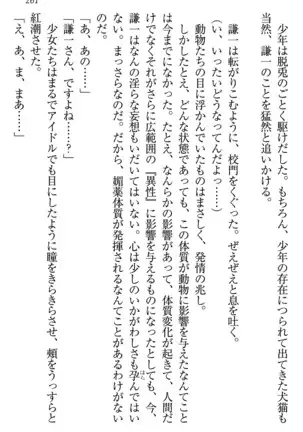 261
少年は脱兎のごとく駆けだした。もちろん、少年の存在につられてきた犬猫も
当然、謙一のことを猛然と追いかける。
謙一は転がりこむように、校門をくぐった。ぜえぜえと息を吐く。
(い、いったいどうなってんだよっ……)
動物たちの目に浮かんでいたものはまさしく、発情の兆し。
しかしたとえ、どんな状態であっても、この体質が動物に影響を与えたなんてこと
は今までになかった。たとえ、なんらかの影響があって、体質変化が起きて、人間だ
けでなくそれがさらに広範囲の『異性』に影響を与えるものになったとしても、今、
謙一はなんの淫らな妄想もいだいてはいない。心は少しのいかがわしさも孕んではい
ない。まっさらなのだ。だから、媚薬体質が発揮されるなんてことがあるわけがない。
「あ、あの……」
「謙一さん、ですよね……?」
少女たちはまるでアイドルでも目にしたように瞳をきらきらさせ、頬をうっすらと
紅潮させた。
「え、あ、ま、まあ……」